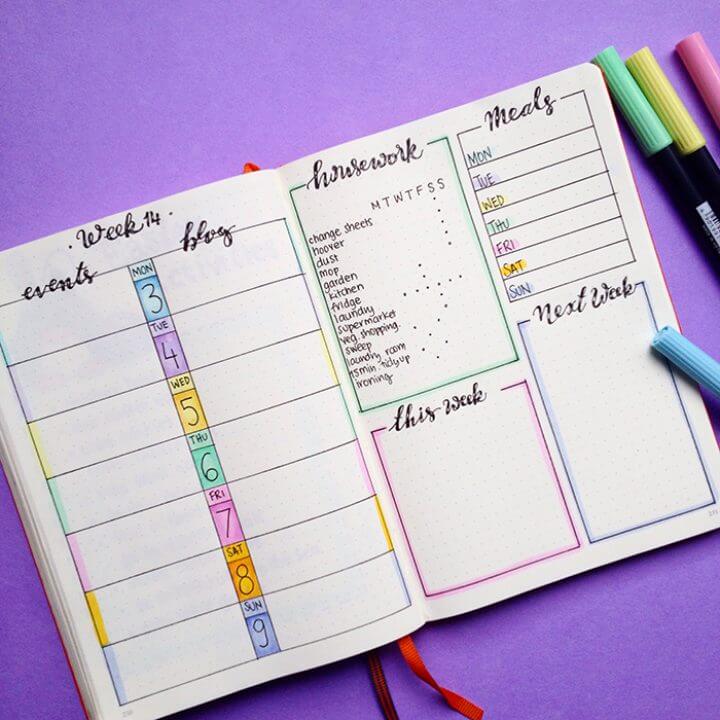 ·Week 14·
events
blog
MON
3
TUE
4
WED
5
THU
6
FRI
7
SAT
8
SUN
9
housework
M T W T F S S
change sheets
hoover
dust
mop
garden
kitchen
fridge
laundry
supermarket
veg. shopping.
sweep
laundry room
15min. tidyup
ironing
Meals
MON
TUE
WED
THU
FRI
SAT
SUN
this week
Next Week